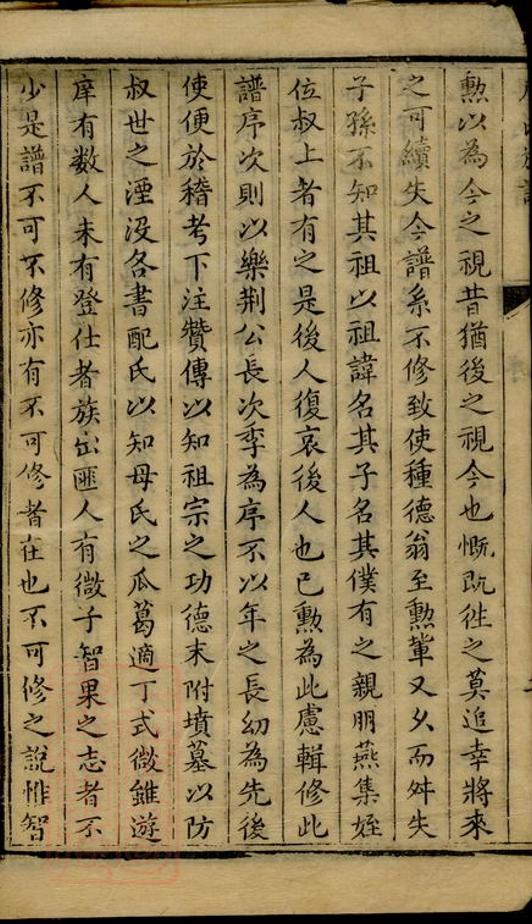 勲以為今之視昔猶後之視今也慨既徃之莫追幸將來
之可續失今譜系不修致使種德翁至勲軰又乆而舛失
子孫不知其祖以祖諱名其子名其僕有之親朋燕集姪
位叔上者有之是後人復哀後人也已勲為此慮輯修此
譜序次則以樂荆公長次季為序不以年之長幼為先後
使便於稽考下注贊傳以知祖宗之功德末附墳墓以防
叔世之湮没各書配氏以知母氏之瓜葛適丁式微雖遊
庠有数人未有登仕者族出匪人有微子智果之志者不
少是譜不可不修亦有不可修者在也不可修之說惟智